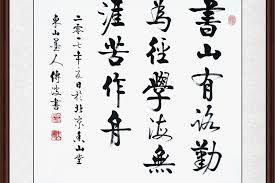 書山有路勤
為徑學海無
涯苦作舟
二零一七年夏日於北京東山堂
東山墨人傅波書